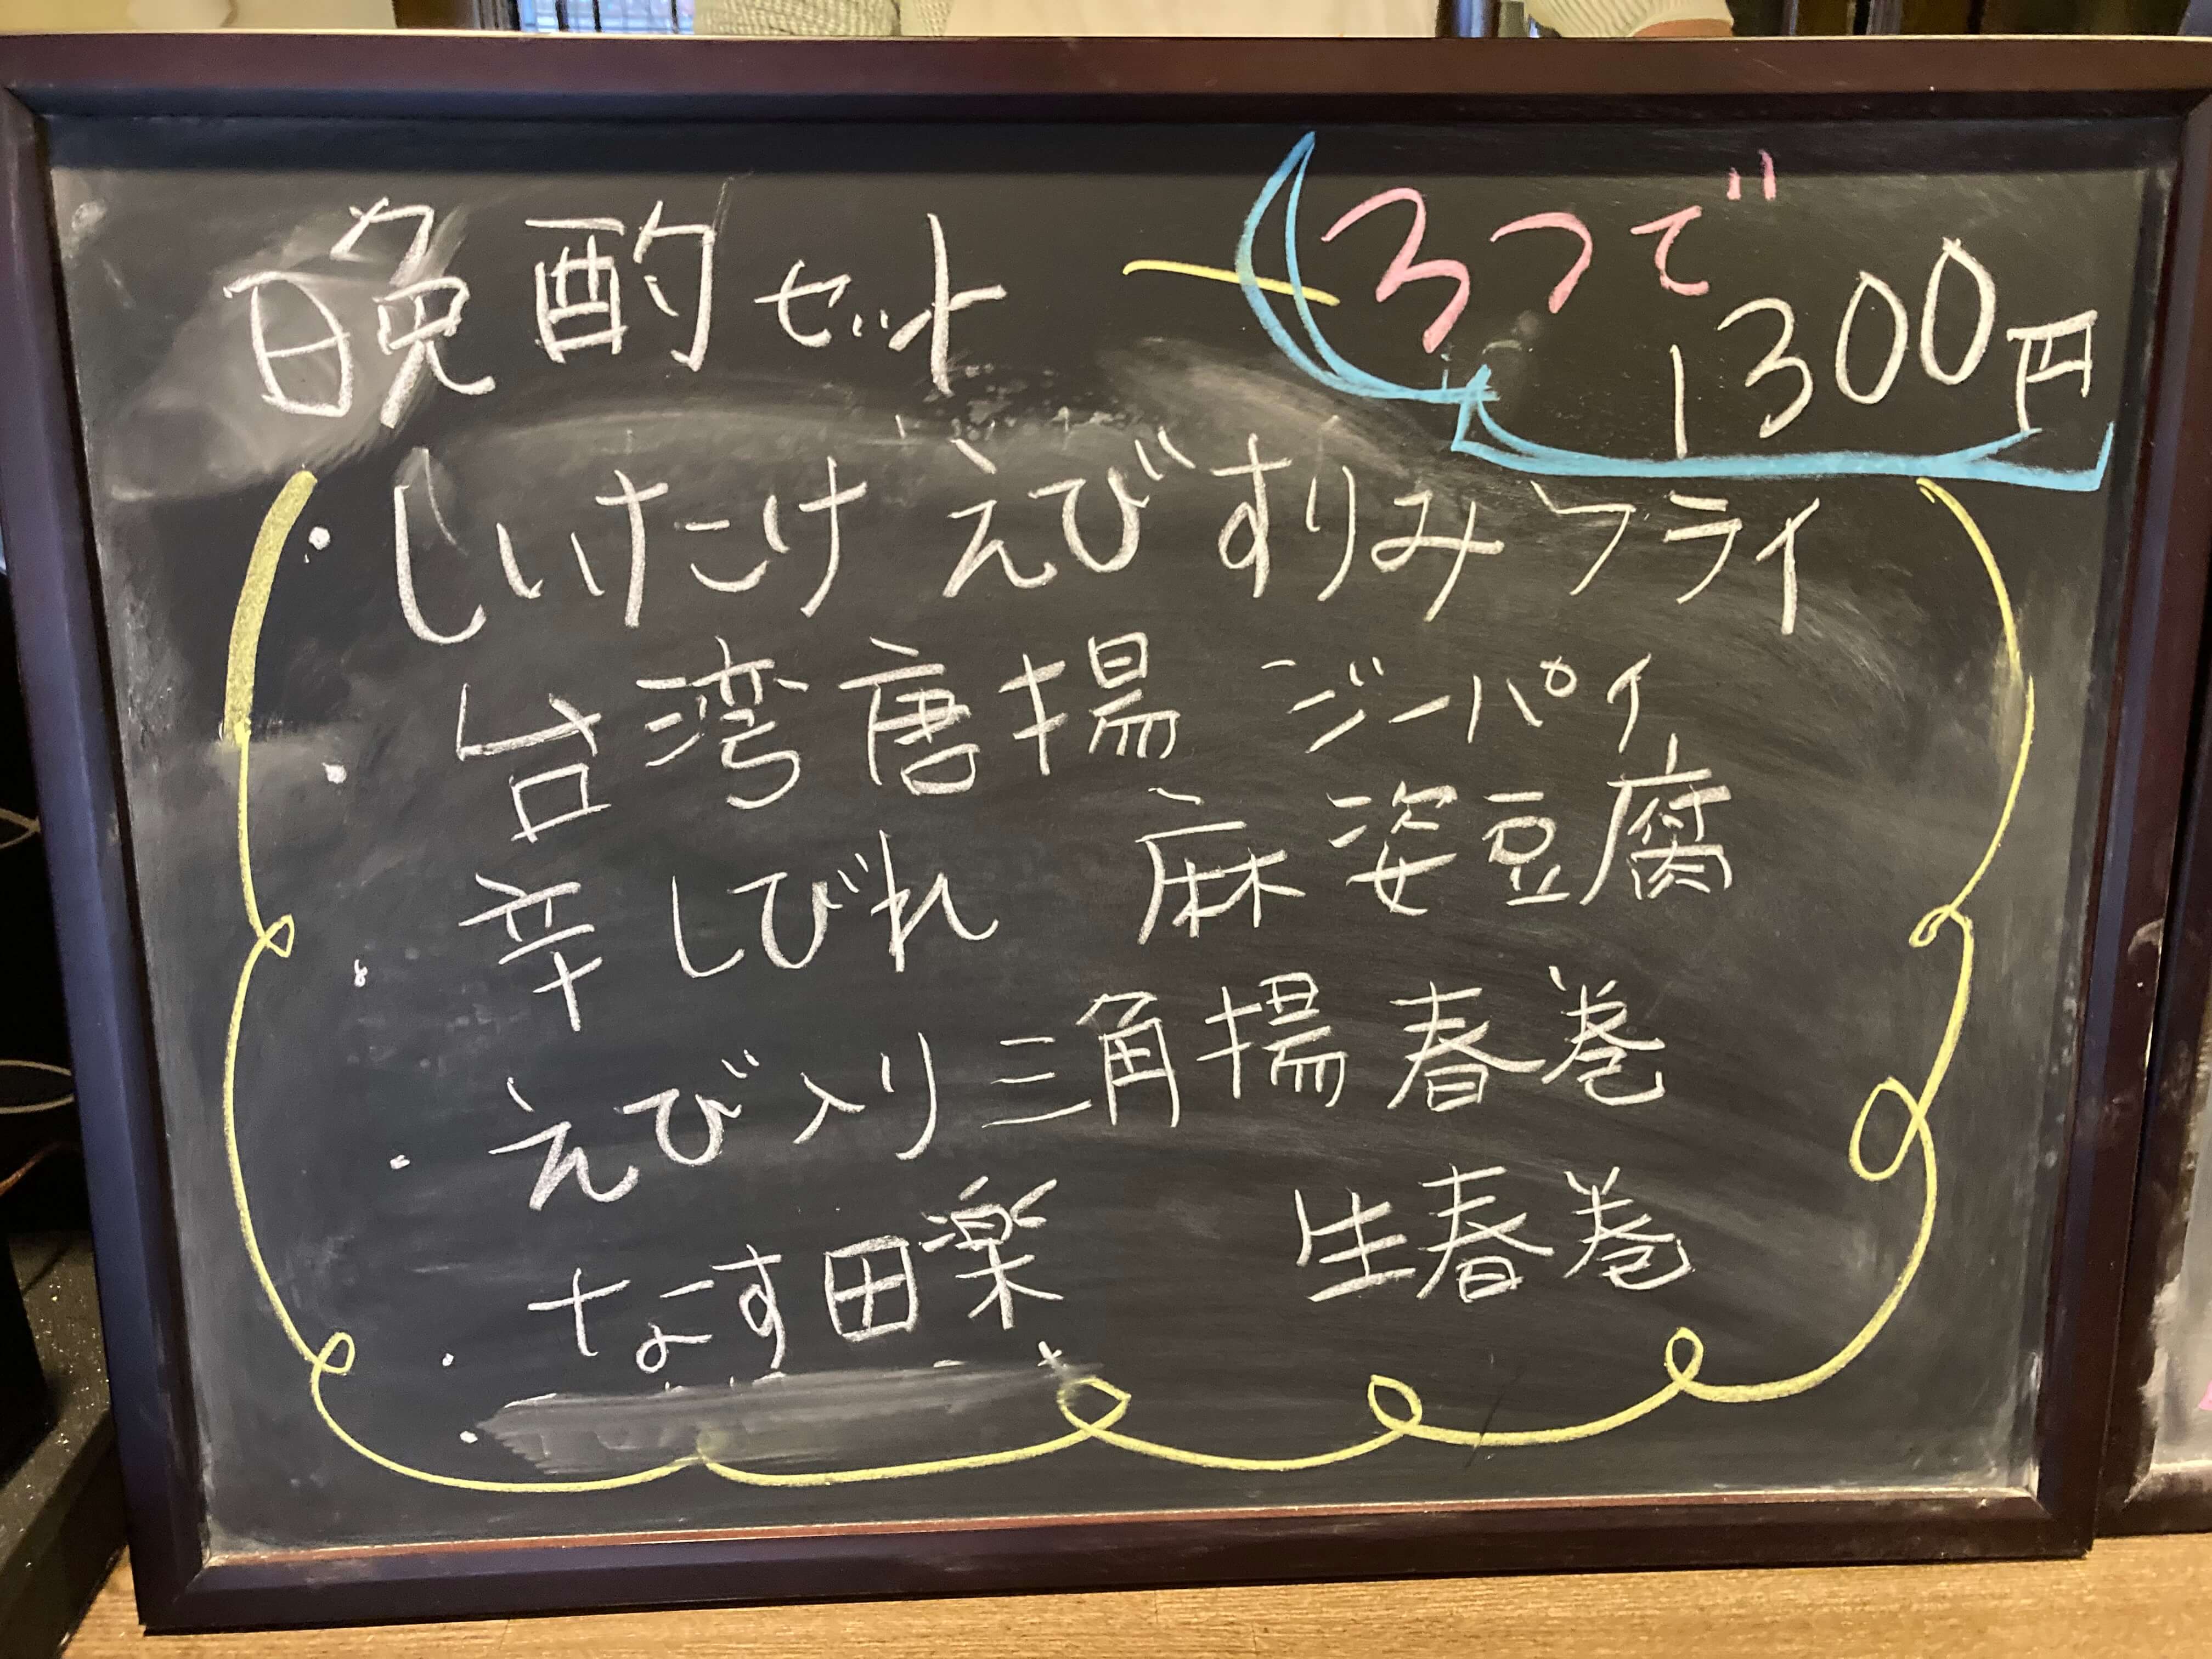 晩酌セット
3つで
1300円
・しいたけえびすりみフライ
・台湾唐揚 ジーパイ
・辛しびれ 麻婆豆腐
・えび入り三角揚春巻
・なす田楽 生春巻